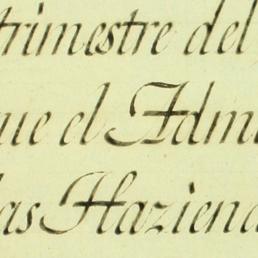 trimestre del
que el Admi
las Haziend